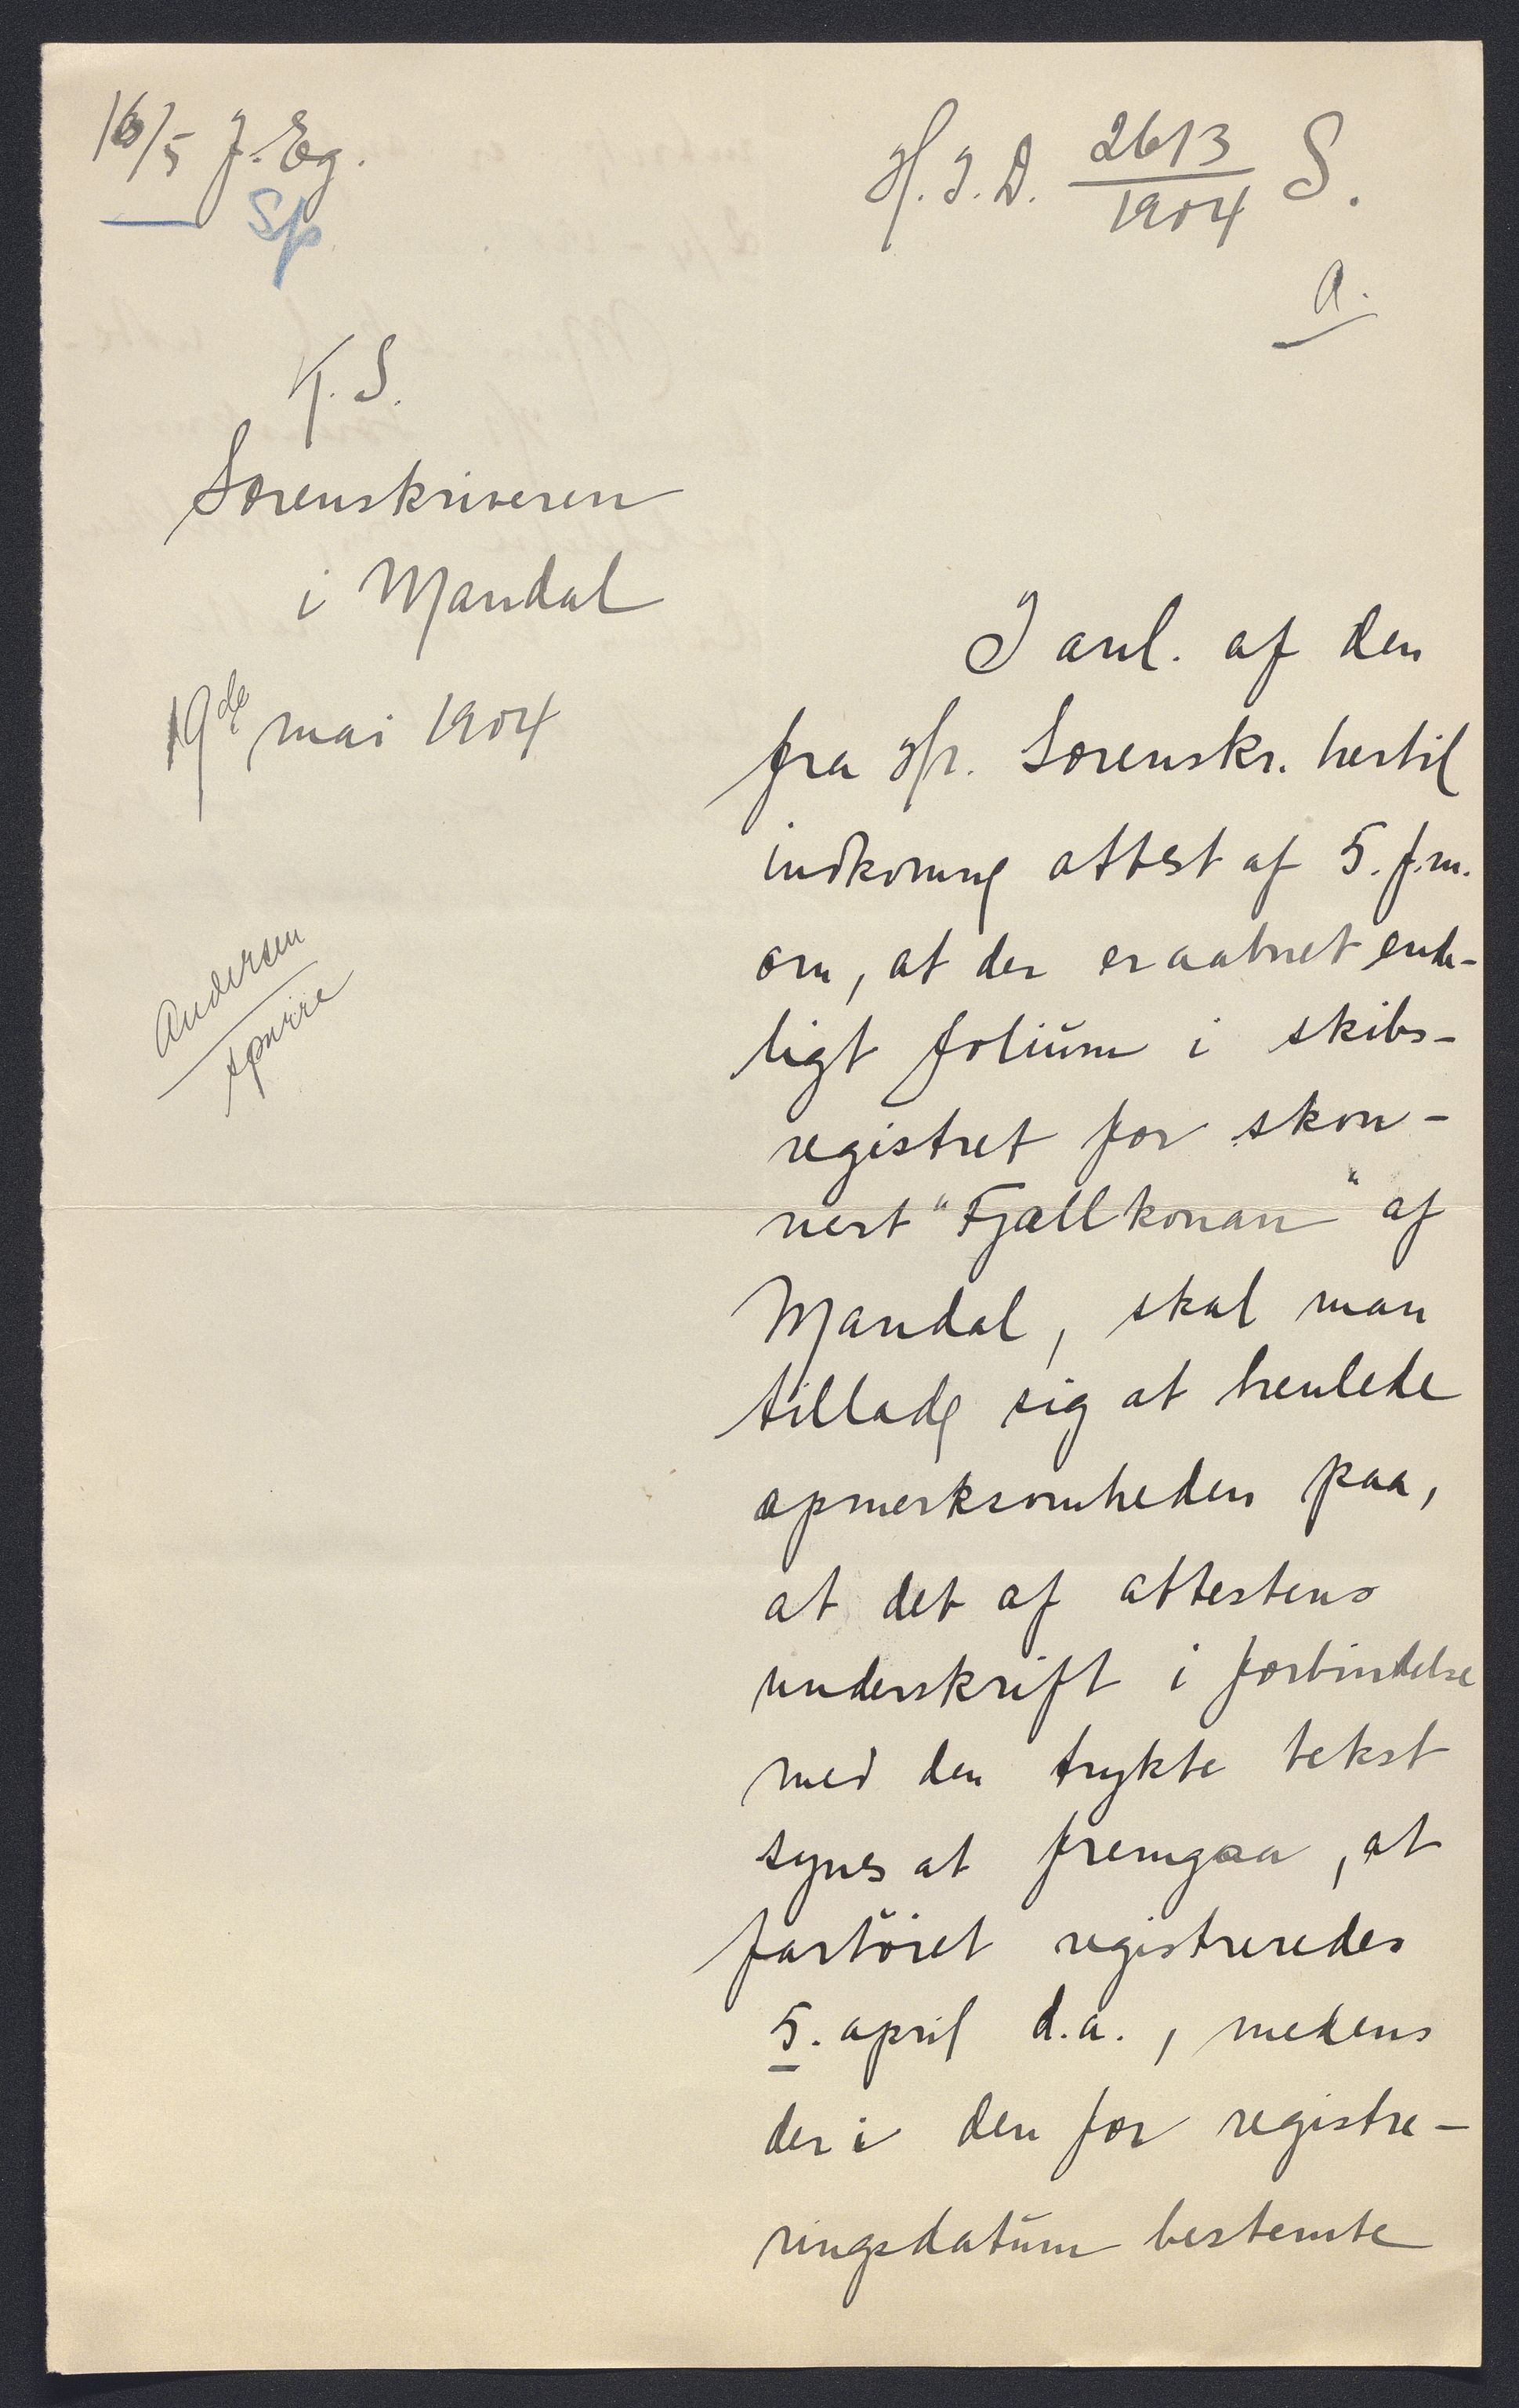 16/5 J. Eg.
Sp
H. I. D. 2613/1904 S.
a.
K. S.
Sorenskriveren
i Mandal
19de mai 1904
Andersen
Spurre
I anl. af den
fra Hr. Sorenskr. hertil
indkomne attest af 5. f.m.
om, at der er aabnet ende-
ligt folium i skibs-
registret for skon-
nert "Fjällkonan" af
Mandal, skal man
tillade sig at henlede
opmerksomheden paa,
at det af attestens
underskrift i forbindelse
med den trykte tekst
synes at fremgaa, at
fartöiet registreredes
5. april d.a., medens
der i den for registre-
ringsdatum bestemte